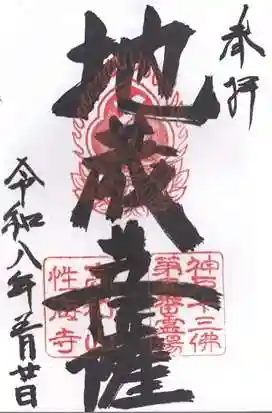 奉拝
地蔵菩薩
神戸十三佛
第五番霊場
性海寺
令和八年月廿日